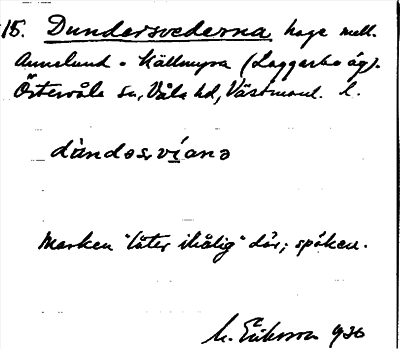 15. Dundersvederna, hage mell.
Annelund o Källmyra (Laggarbo äg).
Östervåla sn, Våla hd, Västmanl. l.
dùndəsvìanə
Marken "låter ihålig" där; spöken.
M. Eriksson 1936